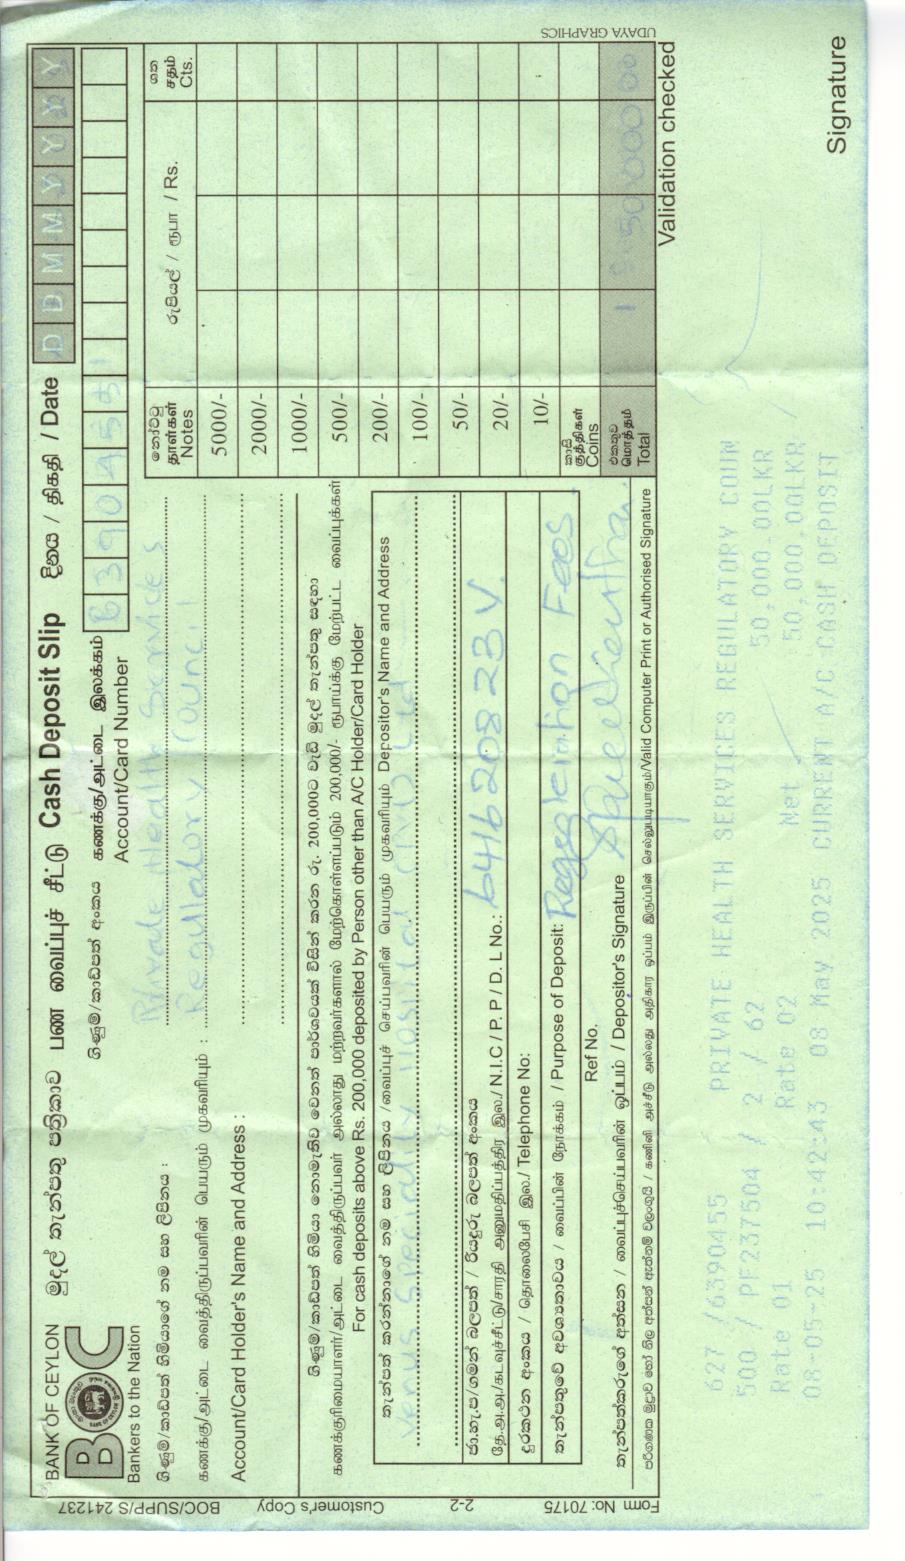 BANK OF CEYLON
BOC
Bankers to the Nation
මුදල් තැන්පතු පත්‍රිකාව பண வைப்புச் சீட்டு Cash Deposit Slip
දිනය / திகதி / Date D D M M Y Y Y Y
ගිණුම්/කාඩ්පත් අංකය கணக்கு/அட்டை இலக்கம்
Account/Card Number 6390455
ගිණුම්/කාඩ්පත් හිමියාගේ නම සහ ලිපිනය : Private Health Services
கணக்கு/அட்டை வைத்திருப்பவரின் பெயரும் முகவரியும் : Regulatory Council
Account/Card Holder's Name and Address :
ගිණුම්/කාඩ්පත් හිමියා නොමැතිව වෙනත් පාර්ශවයක් විසින් කරන රු. 200,000ට වැඩි මුදල් තැන්පතු සඳහා
கணக்குரிமையாளர்/அட்டை வைத்திருப்பவர் அல்லாது மற்றவர்களால் மேற்கொள்ளப்படும் 200,000/- ரூபாய்க்கு மேற்பட்ட வைப்புக்கள்
For cash deposits above Rs. 200,000 deposited by Person other than A/C Holder/Card Holder
තැන්පත් කරන්නාගේ නම සහ ලිපිනය /வைப்புச் செய்பவரின் பெயரும் முகவரியும் Depositor's Name and Address
Venus Speciality Hospital (Pvt) Ltd
ජා.හැ.ප/ගමන් බලපත් / රියදුරු බලපත් අංකය
தே.அ.அ./கடவுச்சீட்டு/சாரதி அனுமதிப்பத்திர இல./ N.I.C / P. P / D. L No.: 641620823V.
දුරකථන අංකය / தொலைபேசி இல./ Telephone No:
තැන්පතුවේ අවශ්‍යතාවය / வைப்பின் நோக்கம் / Purpose of Deposit: Registeration Fees.
Ref No.
තැන්පත්කරුගේ අත්සන / வைப்புச்செய்பவரின் ஒப்பம் / Depositor's Signature
පරිගණක මුද්‍රාව හෝ නිල අත්සන් ඇත්නම් වලංගුයි / கணினி அச்சீடு அல்லது அதிகார ஒப்பம் இருப்பின் செல்லுபடியாகும்/Valid Computer Print or Authorised Signature
නෝට්ටු
தாள்கள்
Notes
රුපියල් / ரூபா / Rs.
ශත
சதம்
Cts.
5000/-
2000/-
1000/-
500/-
200/-
100/-
50/-
20/-
10/-
කාසි
குத்திகள்
Coins
එකතුව
மொத்தம்
Total 50000 00
Validation checked
627 /6390455 PRIVATE HEALTH SERVICES REGULATORY COUN
500 / PF237504 / 2 / 62 50,000.00LKR
Rate 01 Rate 02 Net 50,000.00LKR
08-05-25 10:42:43 08 May 2025 CURRENT A/C CASH DEPOSIT
Signature
Form No: 70175 2-2 Customer's Copy BOC/SUPP/S 241237
UDAYA GRAPHICS